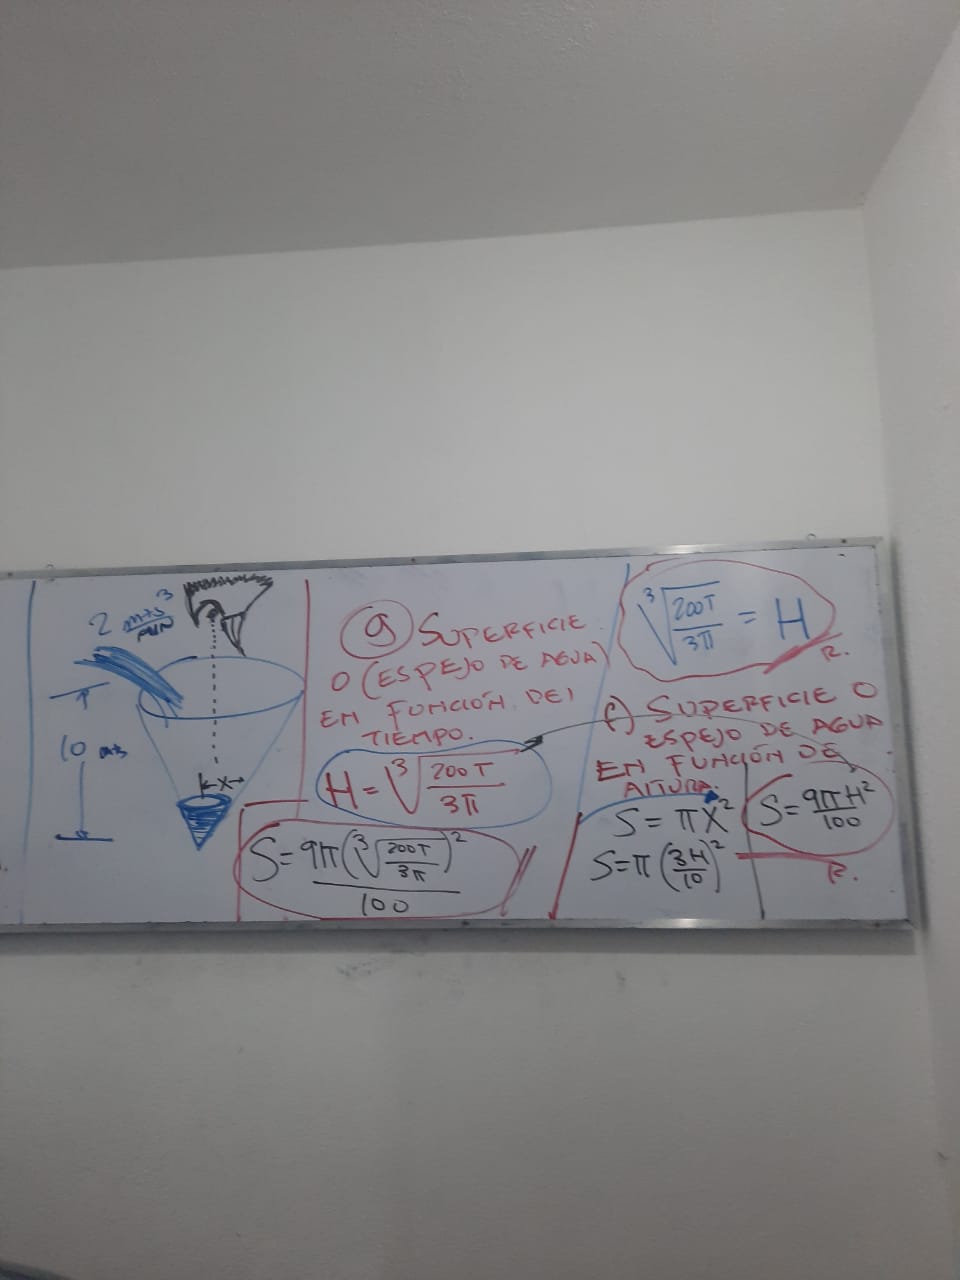 2 mts³/MIN
10 mts
X
g) SUPERFICIE
O (ESPEJO DE AGUA)
EN FUNCIÓN DEl
TIEMPO.
H = ∛(200T/3π)
S = 9π(∛(200T/3π))²/100
∛(200T/3π) = H
R.
f) SUPERFICIE O
ESPEJO DE AGUA
EN FUNCIÓN DE
AlTURA.
S = πX²
S = π(3H/10)²
S = 9πH²/100
R.